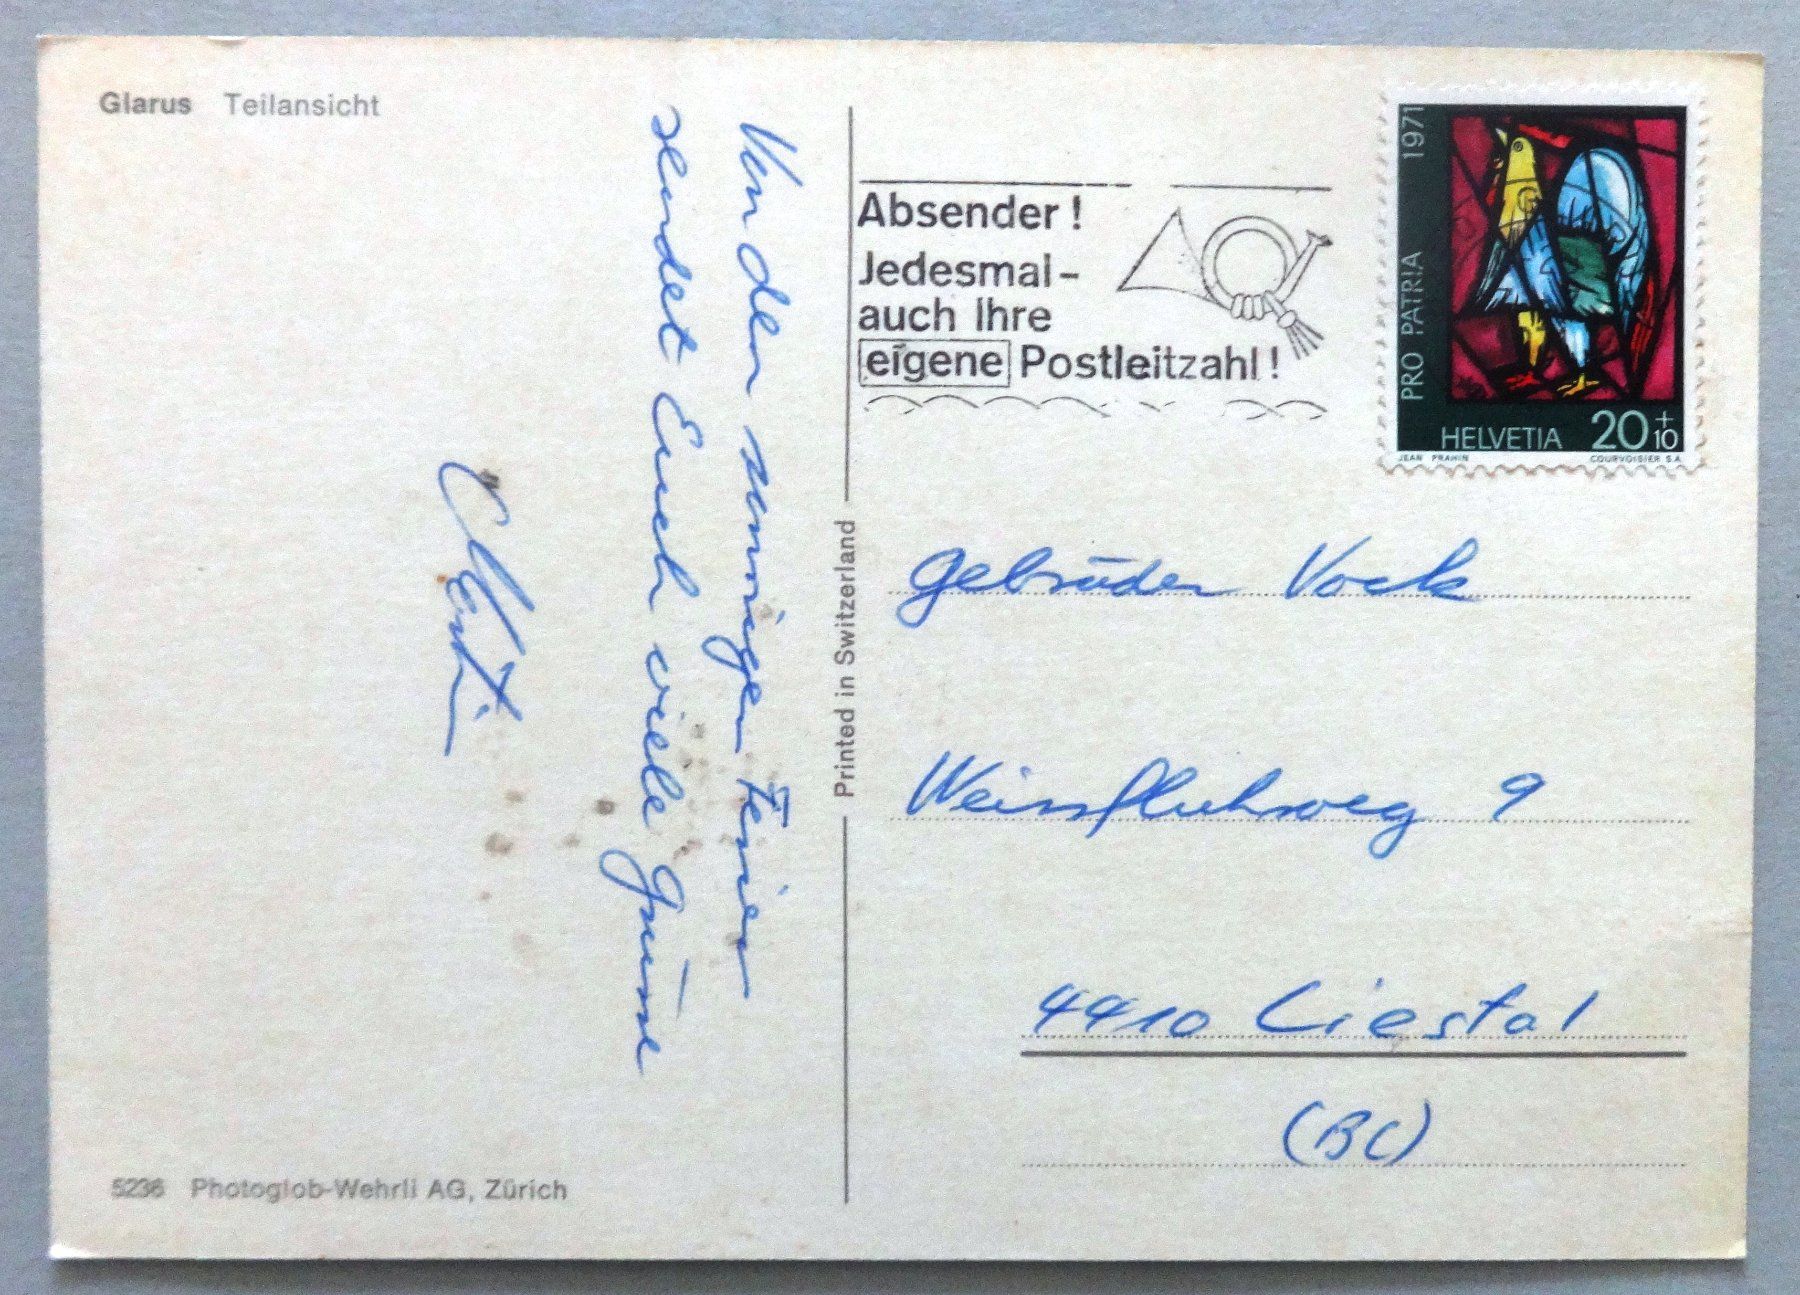 Glarus Teilansicht
Von den sonnigen Ferien
sendet Euch viele Grüsse
5236 Photoglob-Wehrli AG, Zürich
Printed in Switzerland
Absender!
Jedesmal-
auch Ihre
eigene Postleitzahl!
PRO PATRIA 1971
HELVETIA 20+10
JEAN PRAHIN COURVOISIER S.A.
Gebrüder Vock
Weissfluhweg 9
4410 Liestal
(BL)